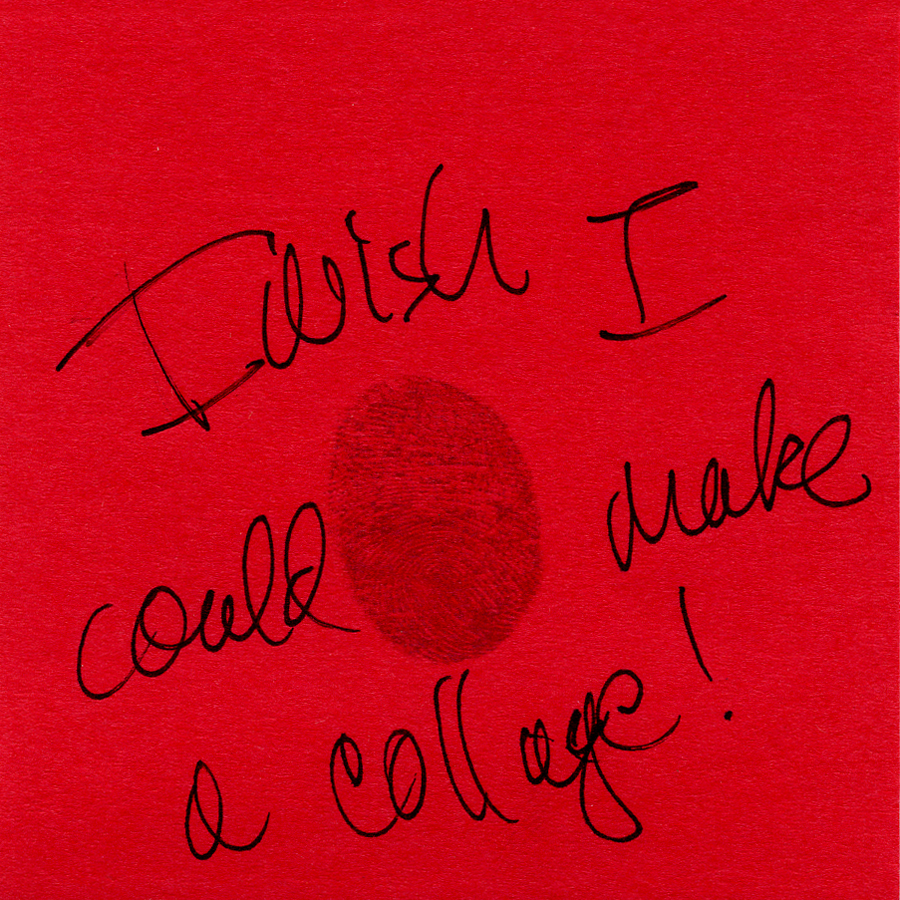 I wish I
could make
a collage!